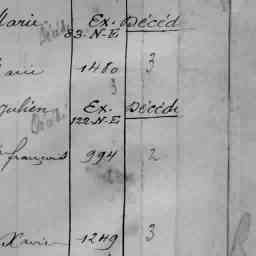 Marie Ex. Décéd
83. N-E
Marie 1480 3
3
Julien Ex. Décédé
122 N-E
françois 994 2
Xavier 1249 3